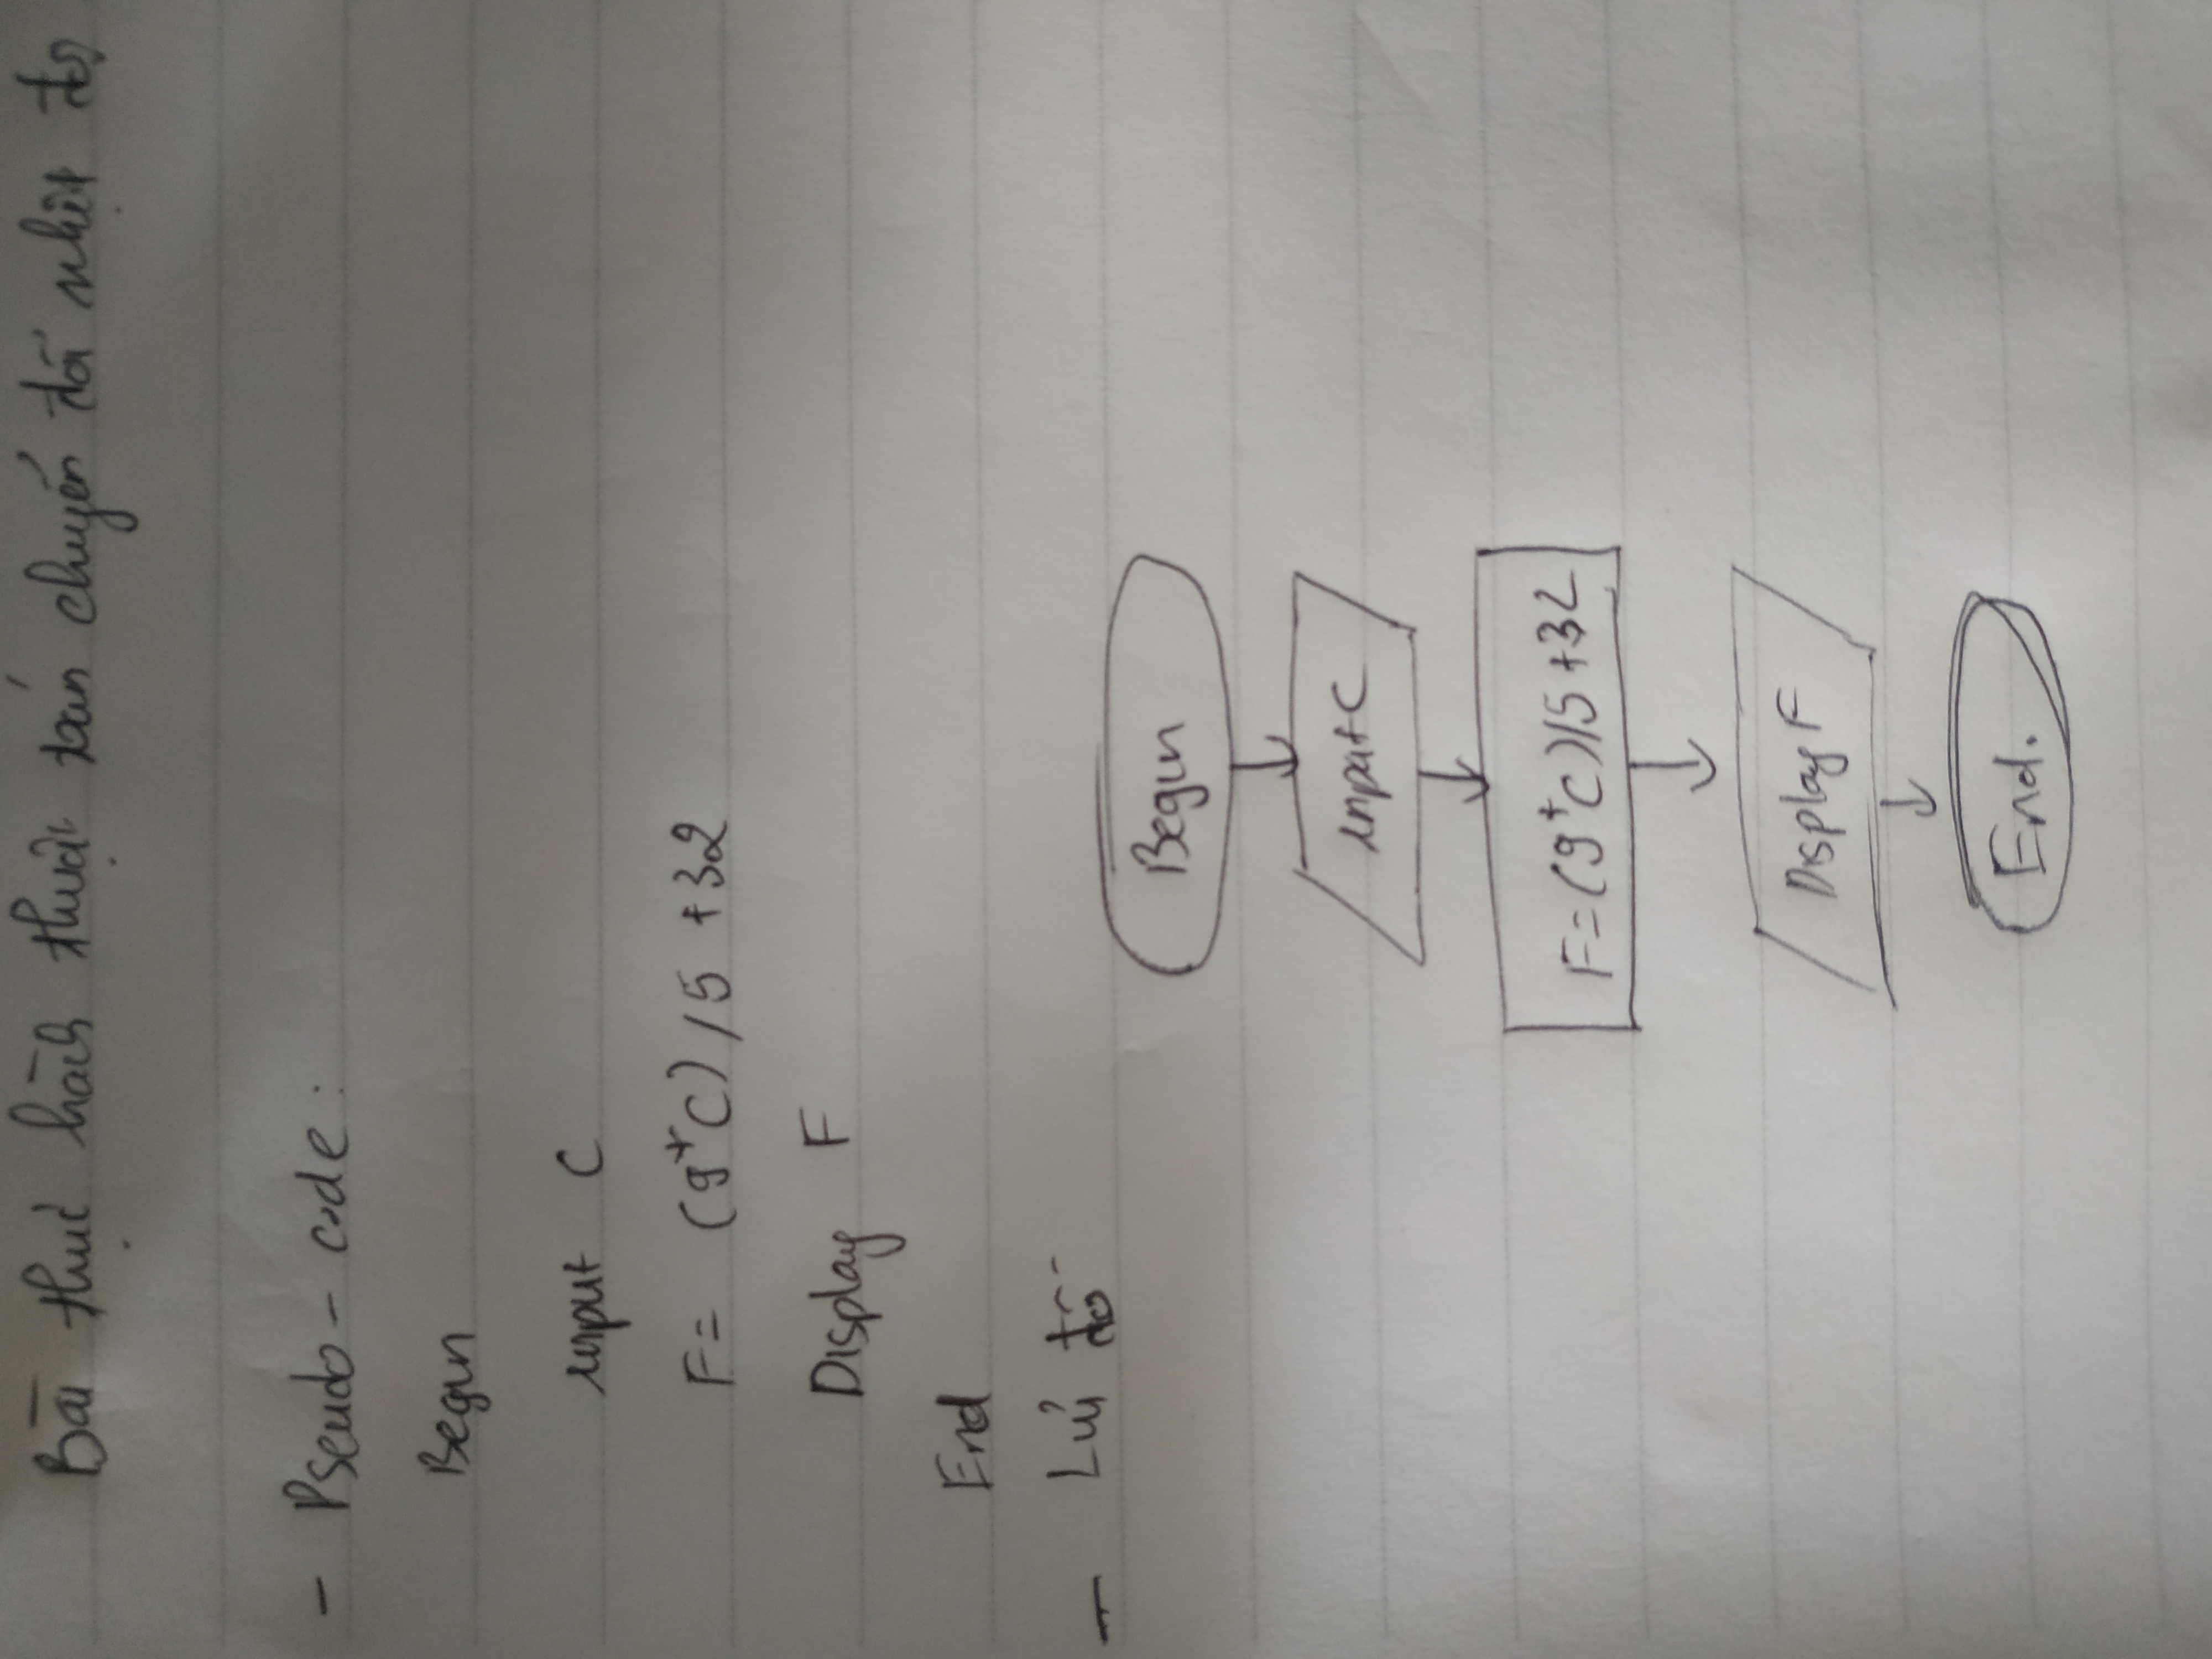 Bài thực hành thuật toán chuyển đổi nhiệt độ
- Pseudo-code:
Begin
input C
F= (9*C) /5 +32
Display F
End
- Lưu đồ
Begin
input C
F=(9*C)/5+32
Display F
End.